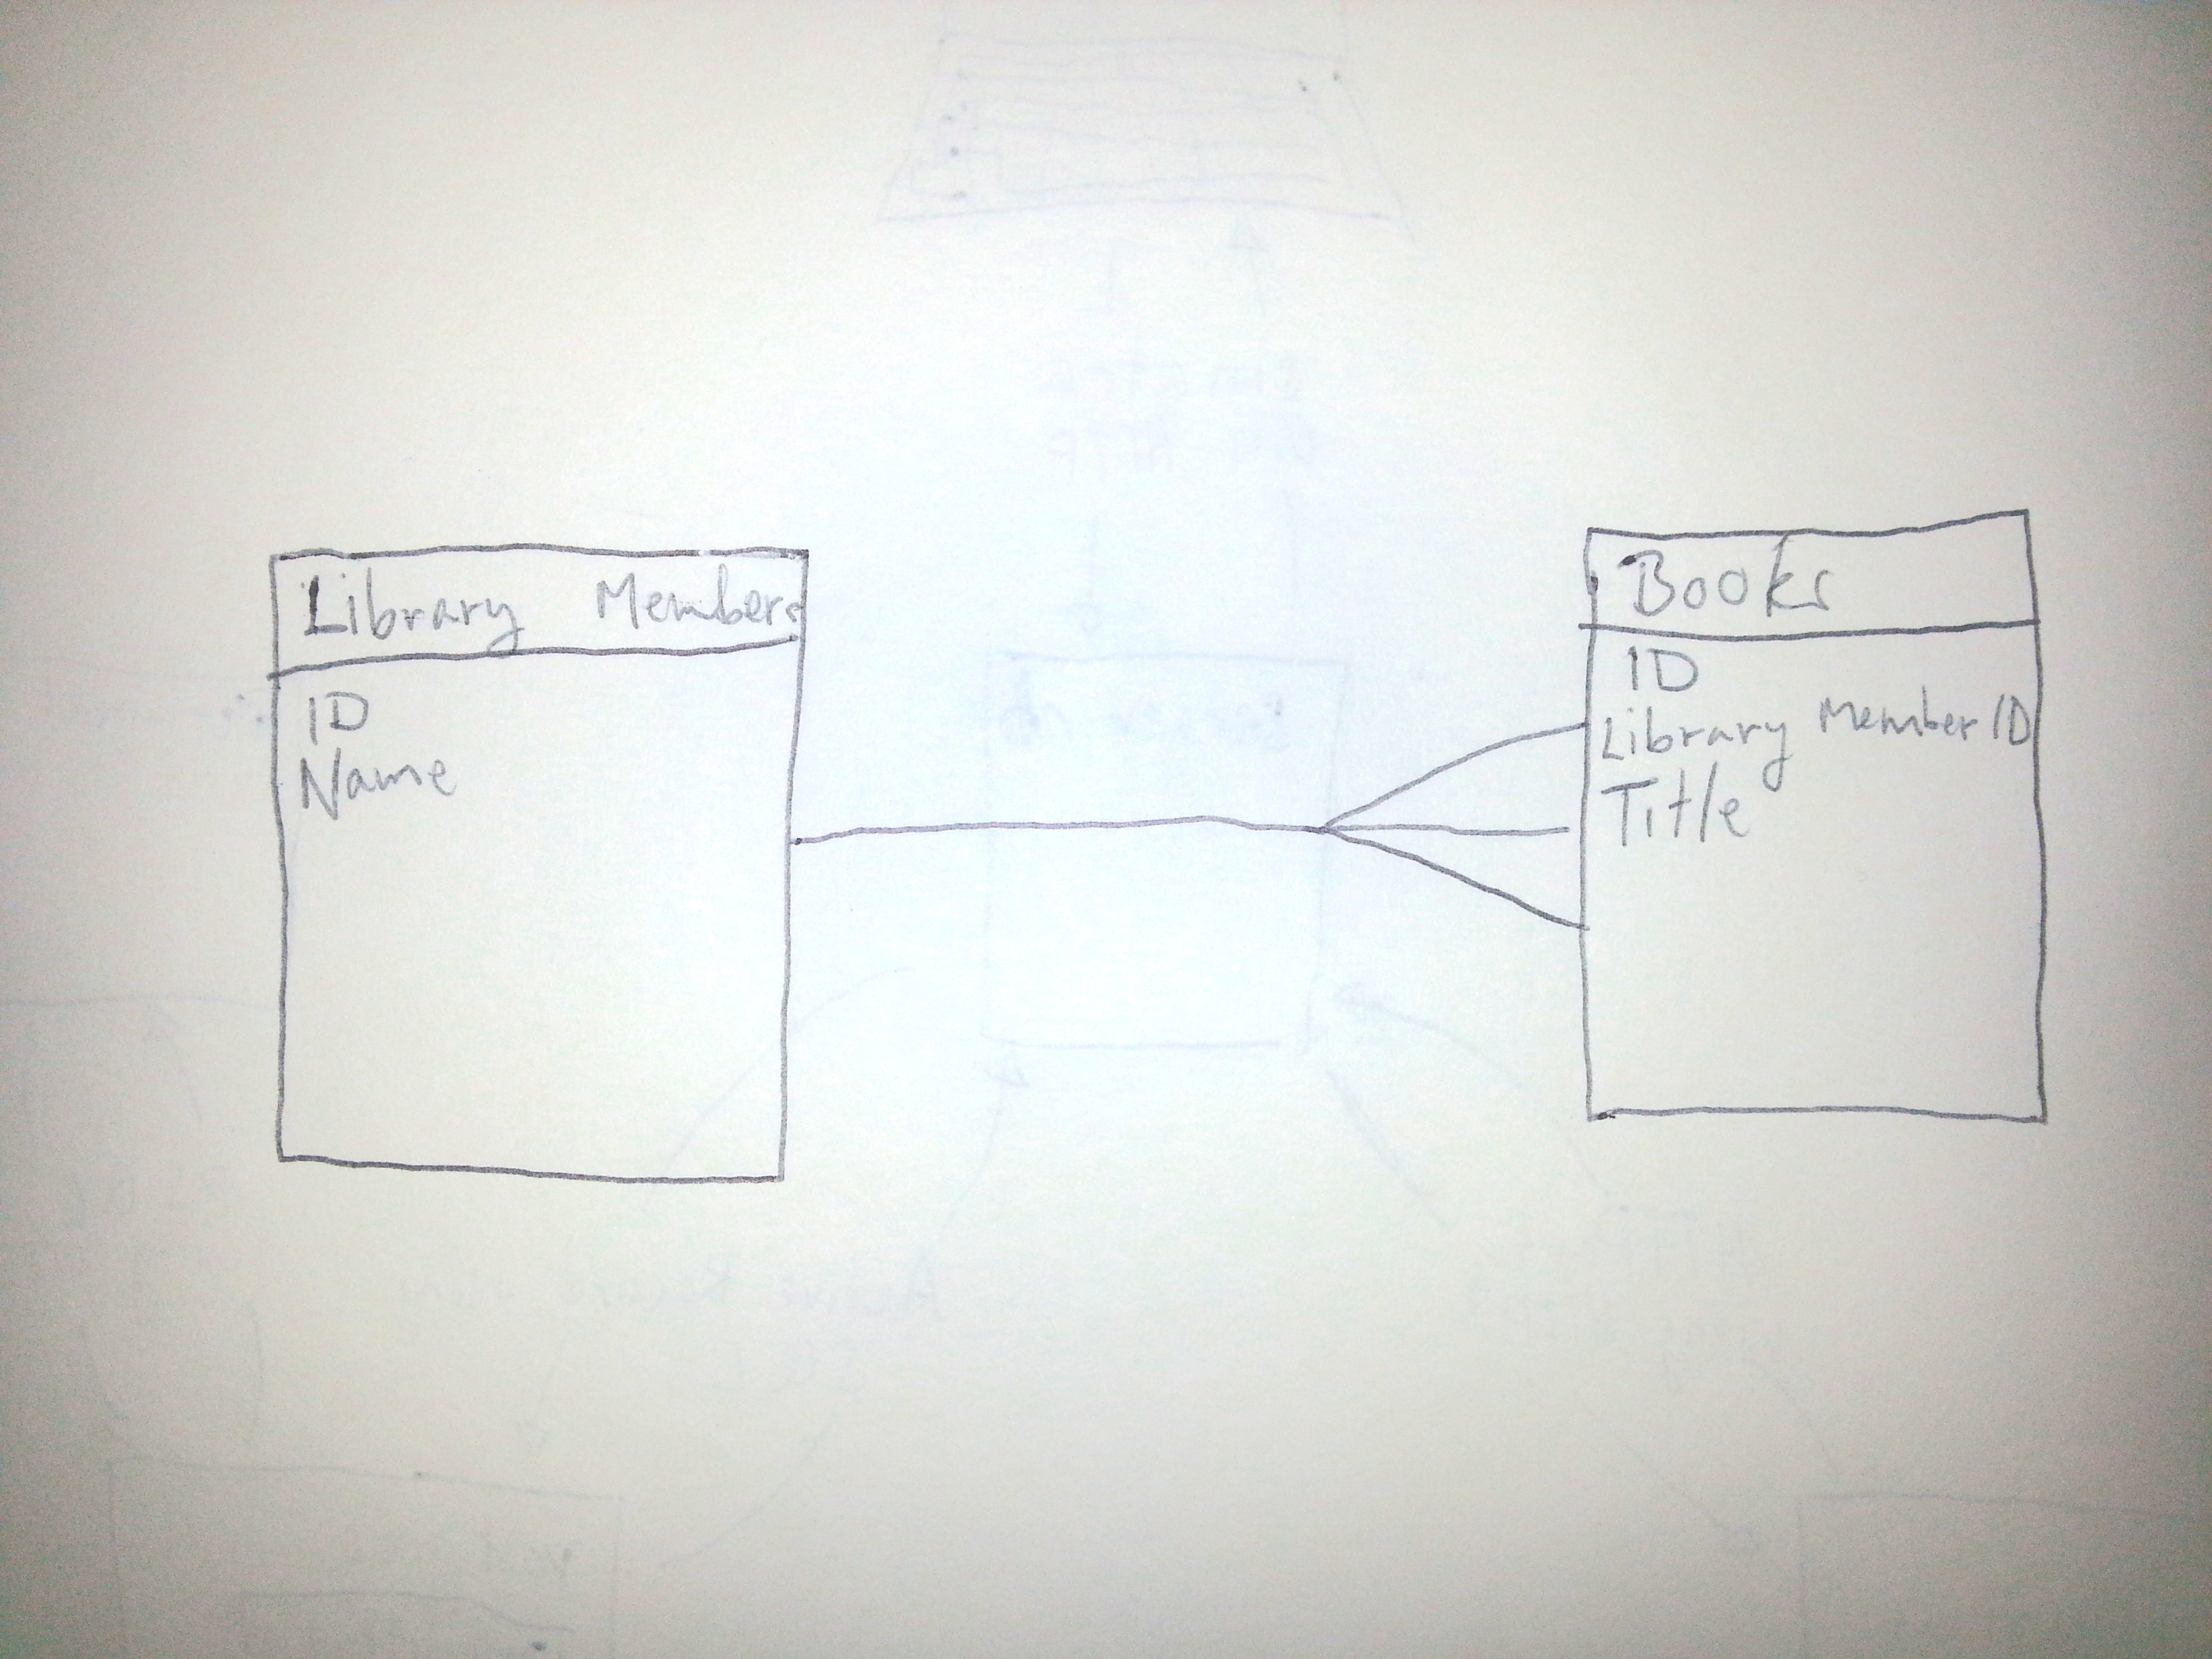 Library Members
ID
Name
Books
ID
Library Member ID
Title